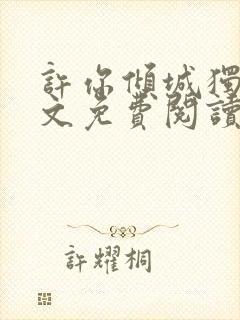 許你傾城獨
文免費閱讀
許耀桐